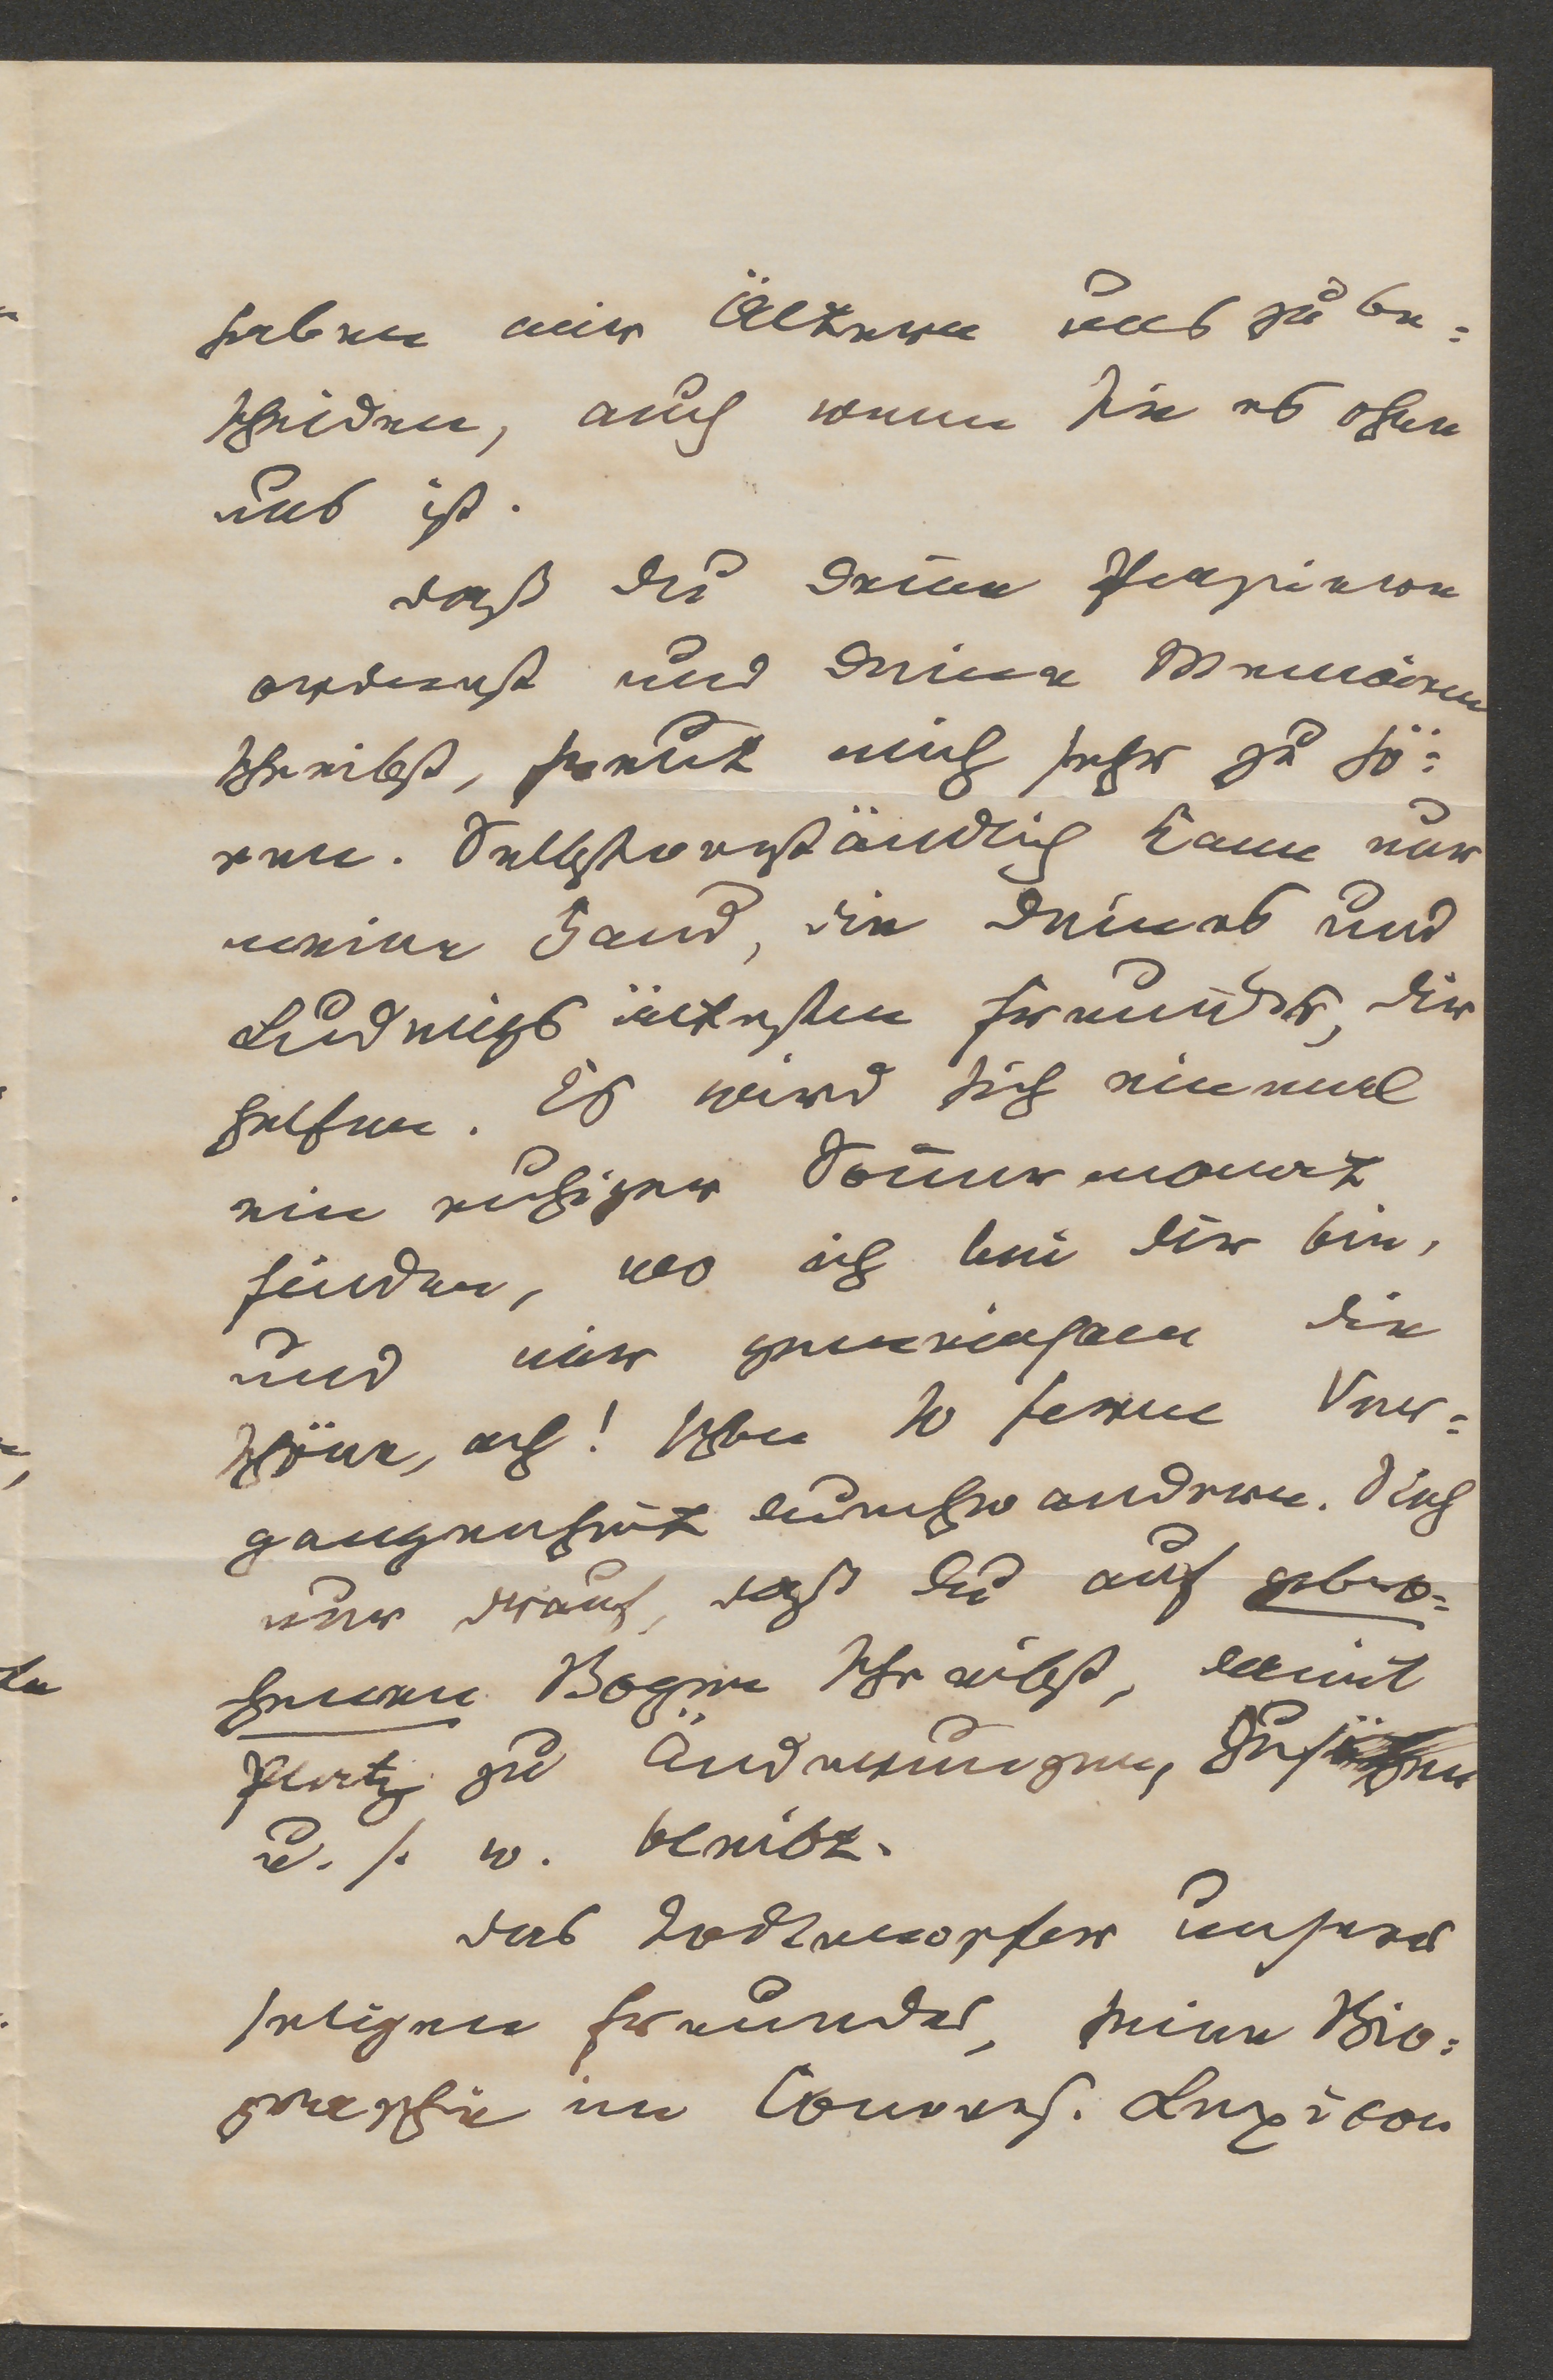 haben wir Älteren uns zu be=
scheiden, auch wenn sie es ohne
uns ist.
daß Du Deine Papiere
ordnest und Deine Memoiren
schreibst, freut mich sehr zu hö=
ren. Selbstverständlich kann nur
meine Hand, die Deines und
Ludwigs ältesten Freundes, Dir
helfen. Es wird sich einmal
ein ruhiger Sommermonat
finden, wo ich bei Dir bin,
und wir gemeinsam die
schöne, ach! schon so ferne Ver=
gangenheit durchwandern. Sieh
nur drauf, daß Du auf gebro=
chenen Bogen schreibst, damit
Platz zu Änderungen, Zusätzen
u. s. w. bleibt.
das Todtenopfer unseres
seligen Freundes, seine Bio=
graphie im Convers. Lexicon